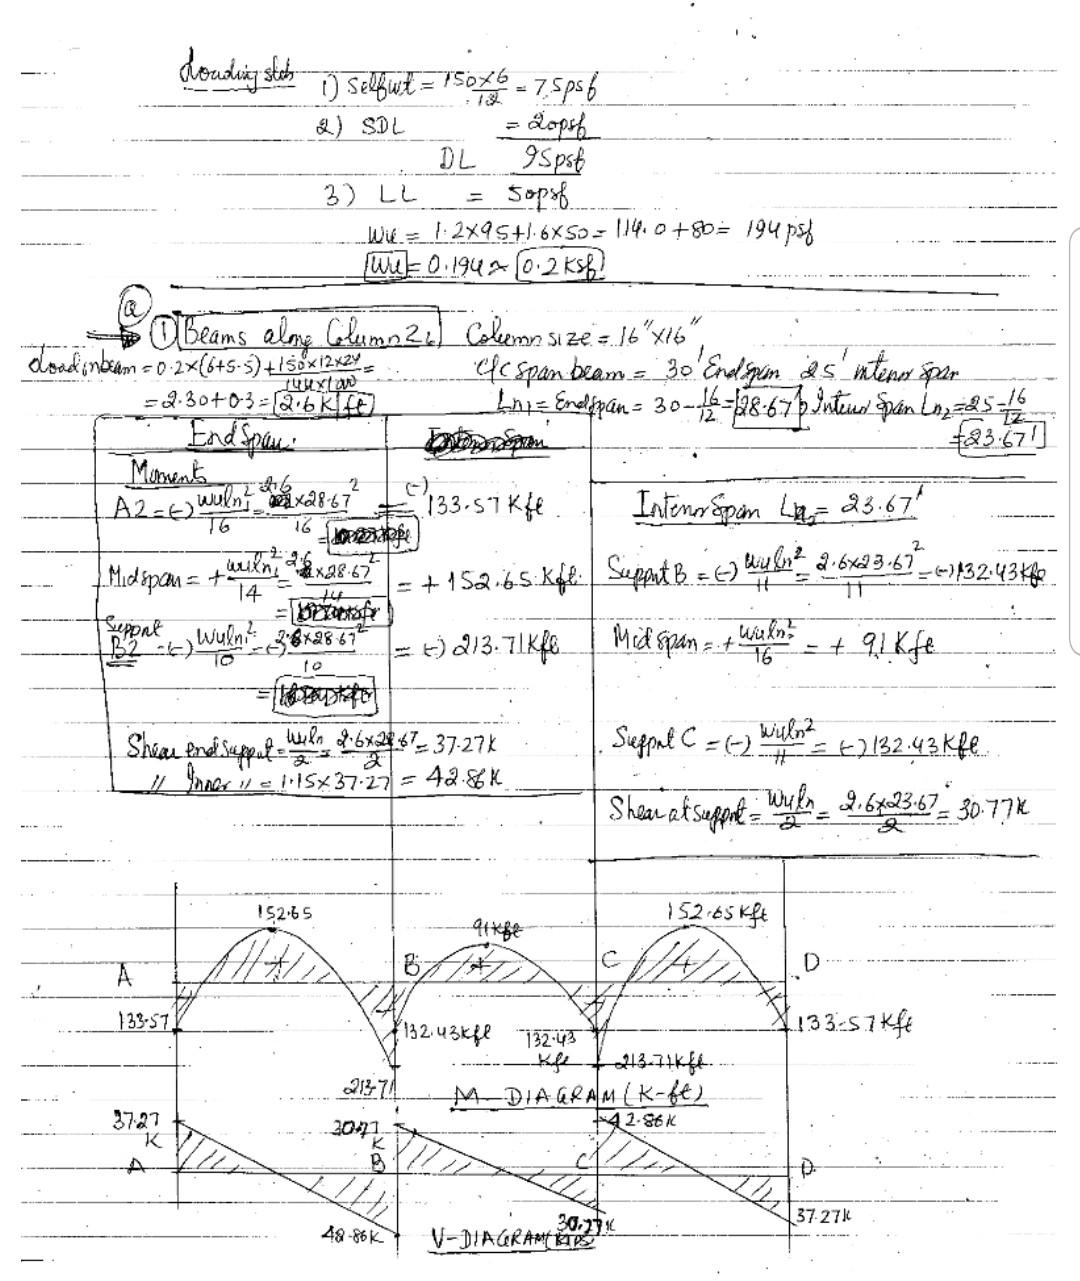 Loading slab
1) Selfwt = 150×6/12 = 75psf
2) SDL = 20psf
DL 95psf
3) LL = 50psf
Wu = 1.2×95+1.6×50 = 114.0+80 = 194 psf
Wu = 0.194 ≈ 0.2 ksf
a
① Beams along Column 2 Column size = 16"×16"
Load on beam = 0.2×(6+5.5)+150×12×24/144×1000 = c/c span beam = 30' Endspan 25' interior span
= 2.30+0.3 = 2.6 K/ft Ln1 = Endspan = 30-16/12 = 28.67', Interior Span Ln2 = 25-16/12
= 23.67'
End Span.
Moments
A2 = (-) wuln1²/16 = 2.6×28.67²/16 = (-) 133.57 Kft
Midspan = + wuln1²/14 = 2.6×28.67²/14 = + 152.65 Kft
Support
B2 = (-) wuln²/10 = (-) 2.6×28.67²/10 = (-) 213.71 Kft
Shear end support = wuln/2 = 2.6×28.67/2 = 37.27k
" Inner " = 1.15×37.27 = 42.86 K
Interior Span Ln2 = 23.67'
Support B = (-) wuln²/11 = 2.6×23.67²/11 = (-) 132.43 Kft
Mid Span = + wuln2²/16 = + 91 Kft
Support C = (-) wuln²/11 = (-) 132.43 Kft
Shear at support = wuln/2 = 2.6×23.67/2 = 30.77 k
152.65 91 Kft 152.65 Kft
A B C D
+ + +
133.57 132.43 Kft 132.43 Kft 133.57 Kft
213.71 213.71 Kft
M-DIAGRAM (K-ft)
37.27 K 30.77 K 42.86 K
A B C D
42.86 K 30.77 K 37.27 K
V-DIAGRAM (KIPS)